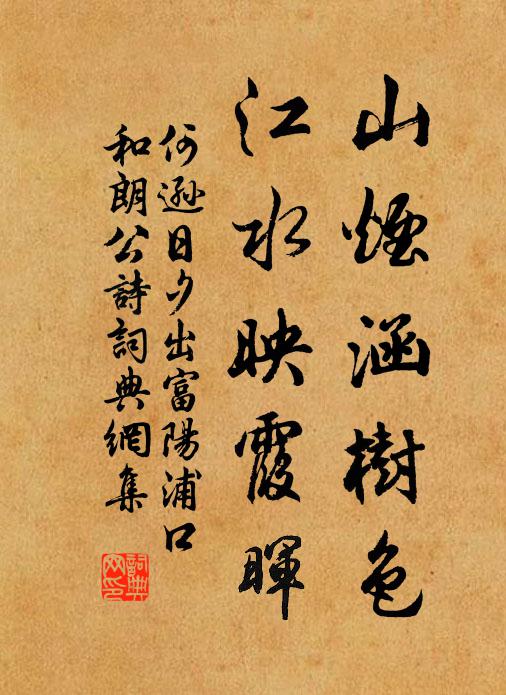 山煙涵樹色
江水映霞暉
何遜日夕出富陽浦口
和朗公詩詞典網集
詞典
网印